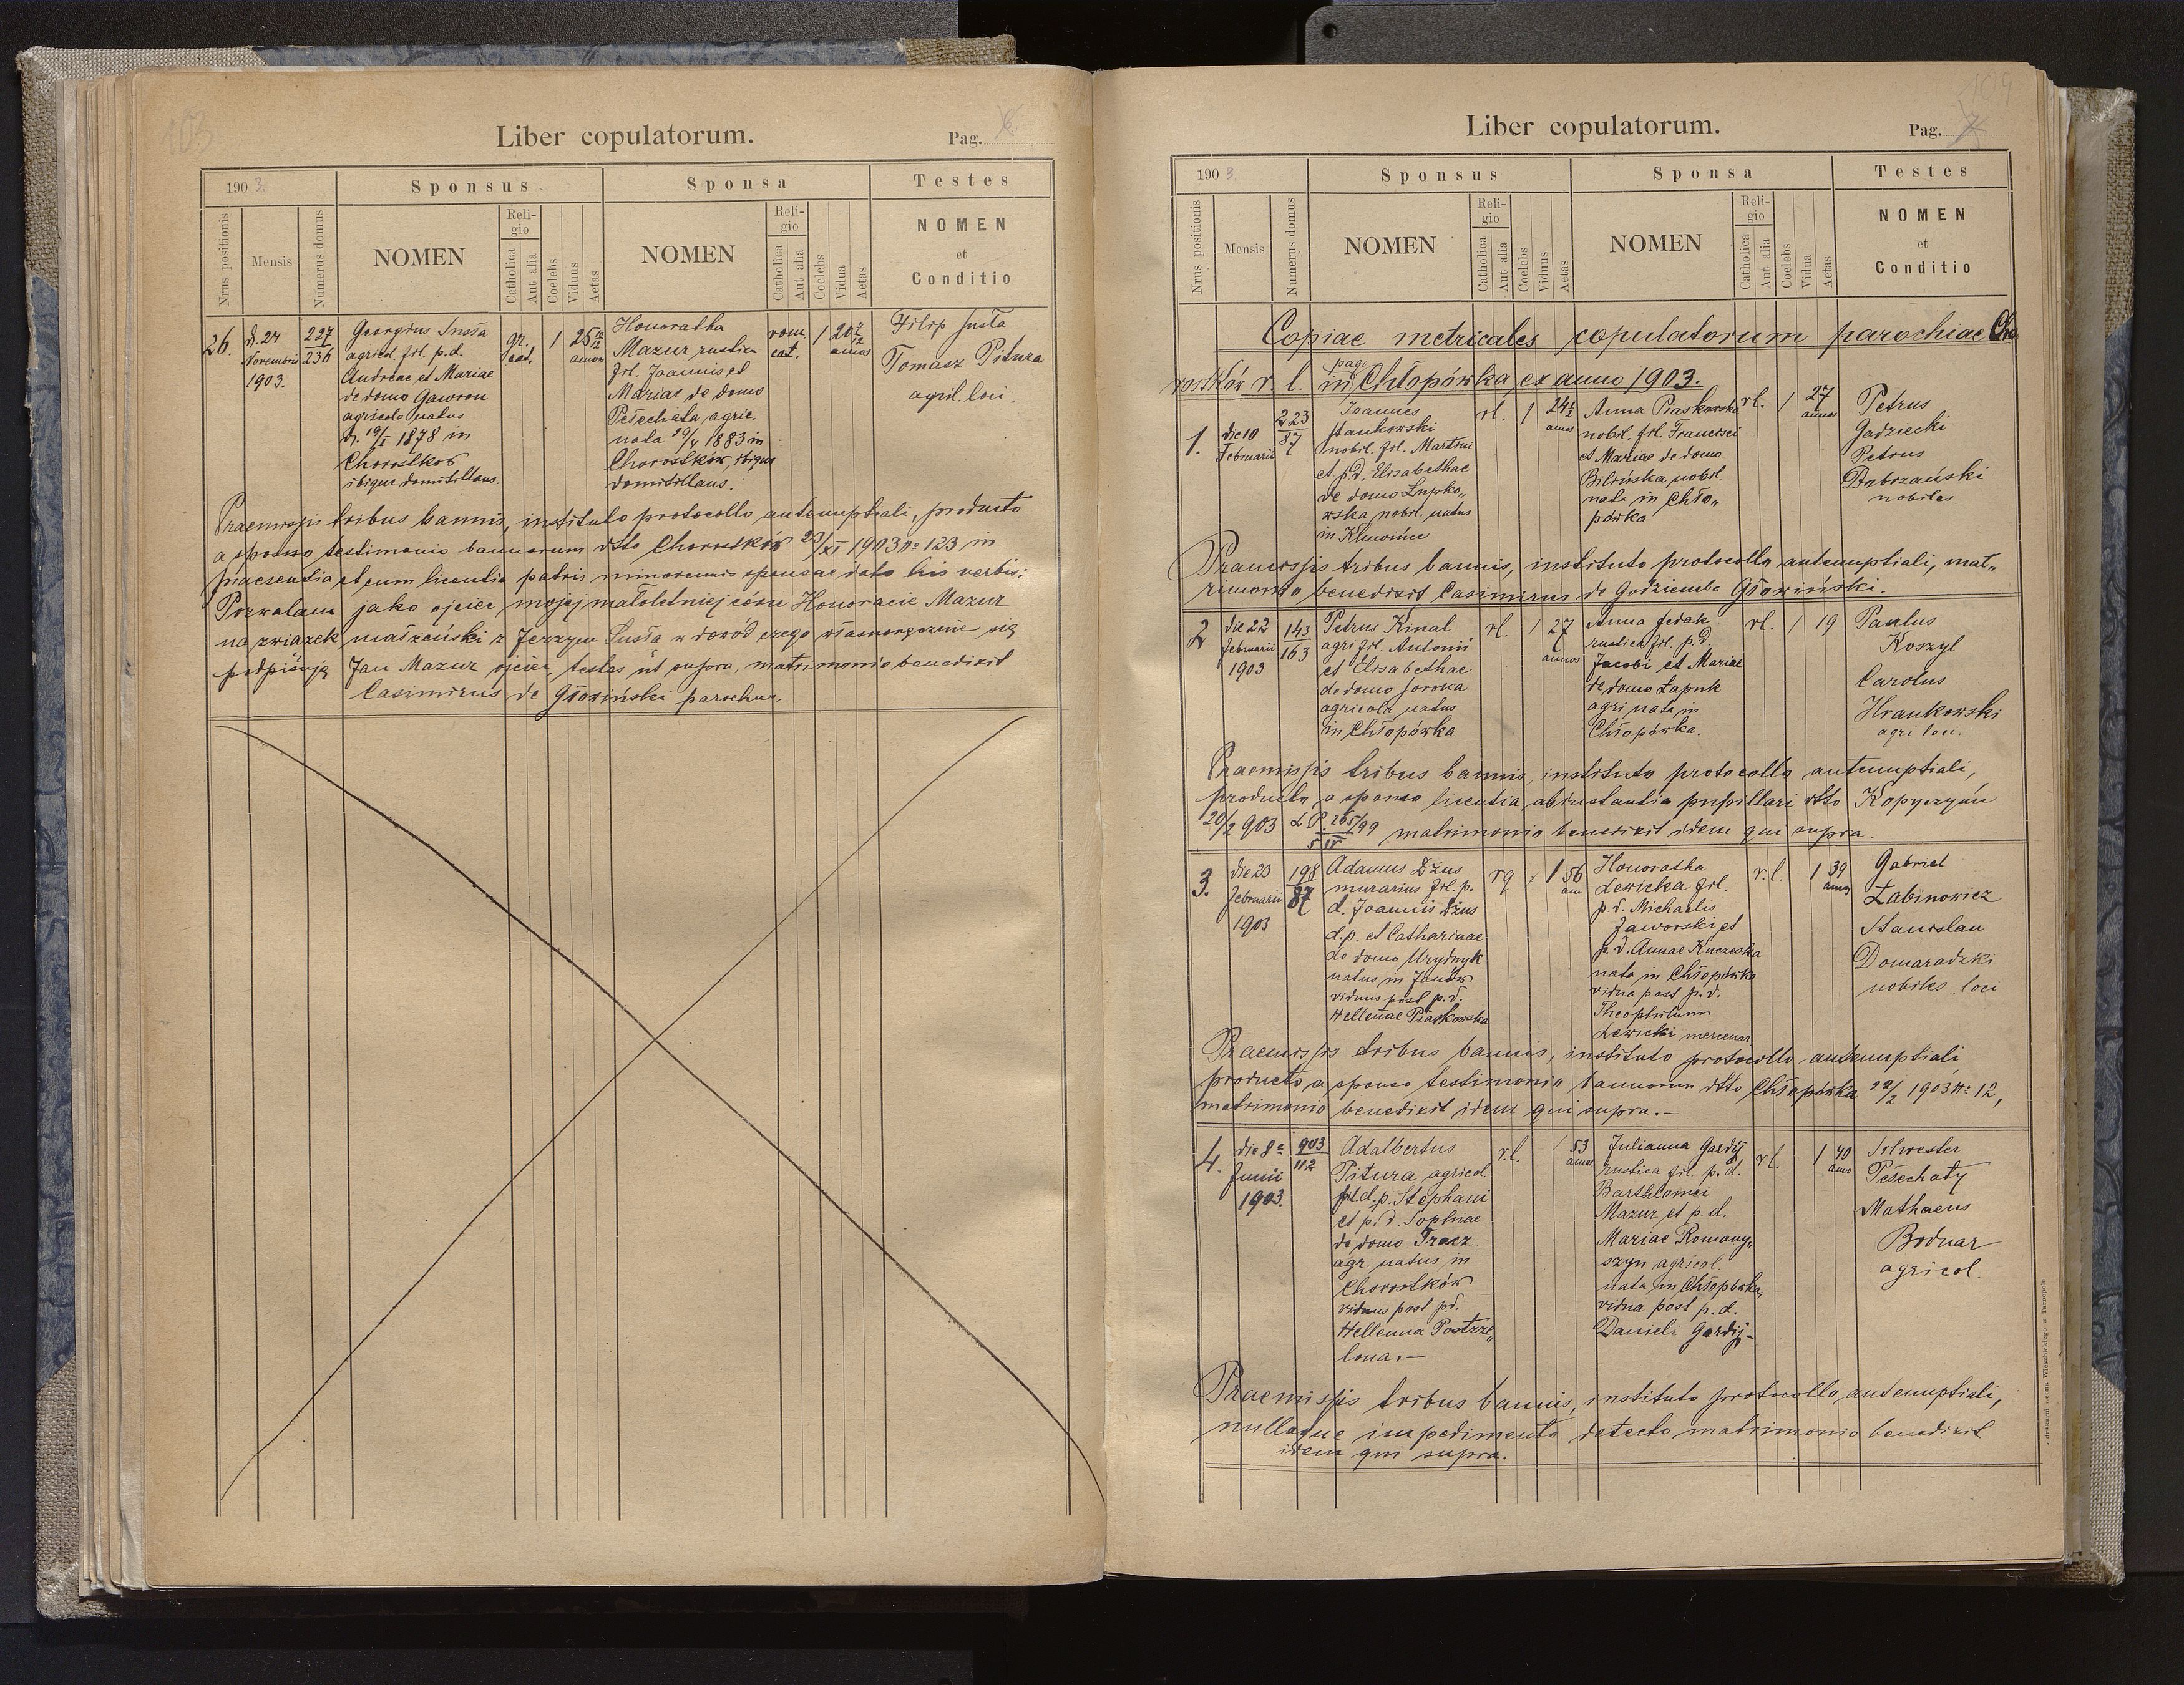 103
Liber copulatorum.
Pag.
1903.
Sponsus
Sponsa
Testes
Nrus positionis
Mensis
Numerus domus
NOMEN
Religio
Catholica
Aut alia
Coelebs
Viduus
Aetas
NOMEN
Religio
Catholica
Aut alia
Coelebs
Vidua
Aetas
NOMEN
et
Conditio
26.
d. 24
Novembris
1903.
227
236
Georgius Susła
agricol. fil. p.d.
Andreae et Mariae
de domo Gawron
agricola natus
d. 19/I 1878 in
Chorostków
ibique domitillans.
gr.
cat.
1
25 10/12
annos
Honoratha
Mazur rustica
fil. Joannis et
Mariae de domo
Peschata, agric.
nata 29/4 1883 in
Chorostków, ibique
domitillans.
rom.
cat.
1
20 7/12
annos
Filip Susła
Tomasz Pitura
agric. loci.
Praemissis tribus bannis, instituto protocollo antenuptiali, producto
a sponso testimonio bannorum dtto Chorostków 23/XI 1903 No 123 in
praesentia et cum licentia patris minorennis sponsae dato his verbis:
Pozwalam jako ojciec, mojej małoletniej córce Honoracie Mazur
na związek małżeński z Jerzym Susła w dowód czego własnoręcznie się
podpisuję Jan Mazur ojciec, testes ut supra, matrimonio benedixit
Casimirus de Głowiński parochus.
109
Liber copulatorum.
Pag.
1903.
Sponsus
Sponsa
Testes
Nrus positionis
Mensis
Numerus domus
NOMEN
Religio
Catholica
Aut alia
Coelebs
Viduus
Aetas
NOMEN
Religio
Catholica
Aut alia
Coelebs
Vidua
Aetas
NOMEN
et
Conditio
Copiae metricales copulatorum parochiae Cho
rostków r. l. pag. in Chłopówka, ex anno 1903.
1.
die 10
Februarii
223
87
Joannes
Stankowski
nobil. fil. Martini
et p.d. Elisabethae
de domo Łupko„
wska nobil. natus
in Kluwińce
rl.
1
24 1/2
annos
Anna Piaskowska
nobil. fil. Francisci
et Mariae de domo
Bilińska nobil.
nata in Chło„
pówka
rl.
1
27
annos
Petrus
Gadziecki
Petrus
Dobrzański
nobiles.
Praemissis tribus bannis, instituto protocollo antenuptiali, mat„
rimonio benedixit Casimirus de Godziemba Głowiński.
2
die 22
Februarii
1903
143
163
Petrus Kinal
agri fil. Antonii
et Elisabethae
de domo Soroka
agricola natus
in Chłopówka
rl.
1
27
annos
Anna Fedak
rustica fil. p.d.
Jacobi et Mariae
de domo Łapuk
agri nata in
Chłopówka.
rl.
1
19
Paulus
Koszyl
Carolus
Hrankowski
agri loci.
Praemissis tribus bannis, instituto protocollo antenuptiali,
producta a sponso licentia ab instantia pupillari dtto Kopyczyńce
20/2 903 L P. 265/99 matrimonio benedixit idem qui supra.
5 IV
3.
die 23
Februarii
1903
198
87
Adamus Dżus
murarius fil. p.
d. Joannis Dżus
d.p. et Catharinae
de domo Urydnyk
natus in Janów
viduus post p.d.
Hellenae Piaskowska
rg
1
56
ann
Honoratha
Lewicka fil.
p.d. Michaelis
Jaworski et
p.d. Annae Kuczeska
nata in Chłopówka
vidua post p.d.
Theophilum
Lewicki mercenar
r.l.
1
39
annos
Gabriel
Łabinowicz
Stanislau
Domaradzki
nobiles loci
Praemissis tribus bannis, instituto protocollo antenuptiali
producto a sponso testimonio bannorum dtto Chłopówka 22/2 1903 No 12,
matrimonio benedixit idem qui supra.—
4.
die 8a
Junii
1903.
903
112
Adalbertus
Pitura agricol.
fil.d.p. Stephani
et p.d. Sophiae
de domo Tracz
agr. natus in
Chorostków
viduus post p.d.
Hellenna Postrze„
lona.—
r.l.
1
53
annos
Julianna Gardij
rustica fil. p.d.
Barthlomei
Mazur et p.d.
Mariae Romany„
szyn agricol.
nata in Chłopówka,
vidua post p.d.
Danieli Gardij—
rl.
1
40
anno
Silwester
Pesechaty
Mathaeus
Bodnar
agricol.
Praemissis tribus bannis, instituto protocollo, antenuptiali,
nulloque impedimento detecto matrimonio benedixit
idem qui supra.